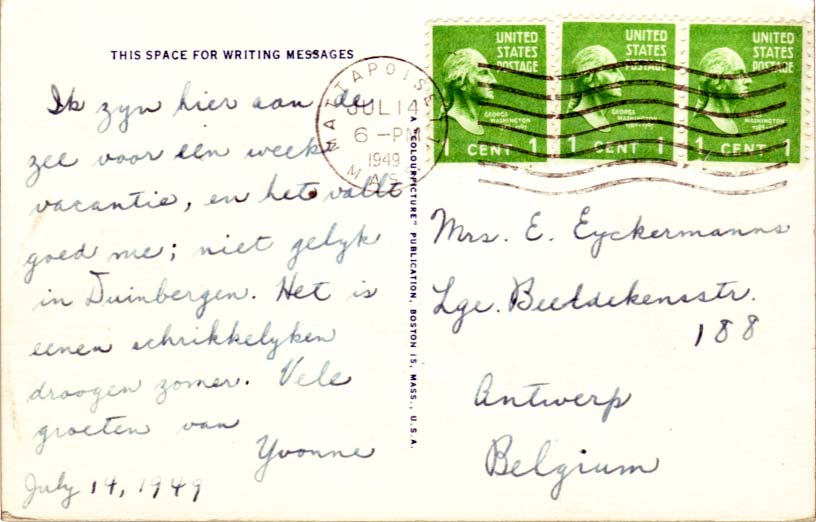 THIS SPACE FOR WRITING MESSAGES
Ik zyn hier aan de
zee voor een week
vacantie, en het vallt
goed me; niet gelyk
in Duinbergen. Het is
eenen schrikkelyken
droogen zomer. Vele
groeten van
Yvonne
July 14, 1949
A "COLOURPICTURE" PUBLICATION, BOSTON 15, MASS., U.S.A.
MATTAPOISETT
JUL 14
6 - PM
1949
MASS.
UNITED STATES POSTAGE
GEORGE WASHINGTON
1789-1797
1 CENT 1
UNITED STATES POSTAGE
GEORGE WASHINGTON
1789-1797
1 CENT 1
UNITED STATES POSTAGE
GEORGE WASHINGTON
1789-1797
1 CENT 1
Mrs. E. Eyckermanns
Lge. Beeldekensstr.
188
Antwerp
Belgium